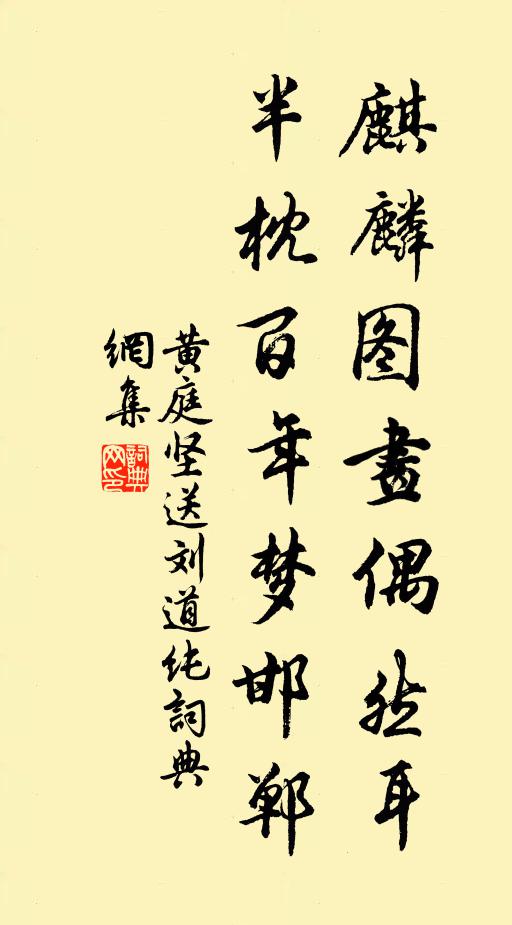 麒麟图畫偶然耳
半枕百年梦邯郸
黄庭坚送刘道纯詞典
網集
詞典
网印